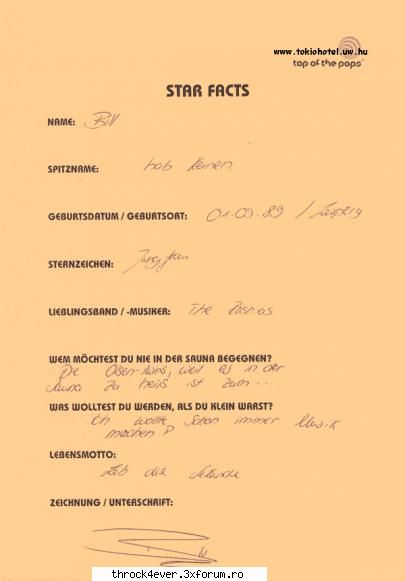 www.tokiohotel.uw.hu
top of the pops
STAR FACTS
NAME: Bill
SPITZNAME: hab keinen
GEBURTSDATUM / GEBURTSORT: 01.09.89 / Leipzig
STERNZEICHEN: Jungfrau
LIEBLINGSBAND / -MUSIKER: The Rasmus
WEM MÖCHTEST DU NIE IN DER SAUNA BEGEGNEN?
Die Olsen-twins, weil es in der
Sauna zu heiß ist zum ....
WAS WOLLTEST DU WERDEN, ALS DU KLEIN WARST?
Ich wollte schon immer Musik
machen
LEBENSMOTTO:
Leb die Sekunde
ZEICHNUNG / UNTERSCHRIFT:
throck4ever.3xforum.ro